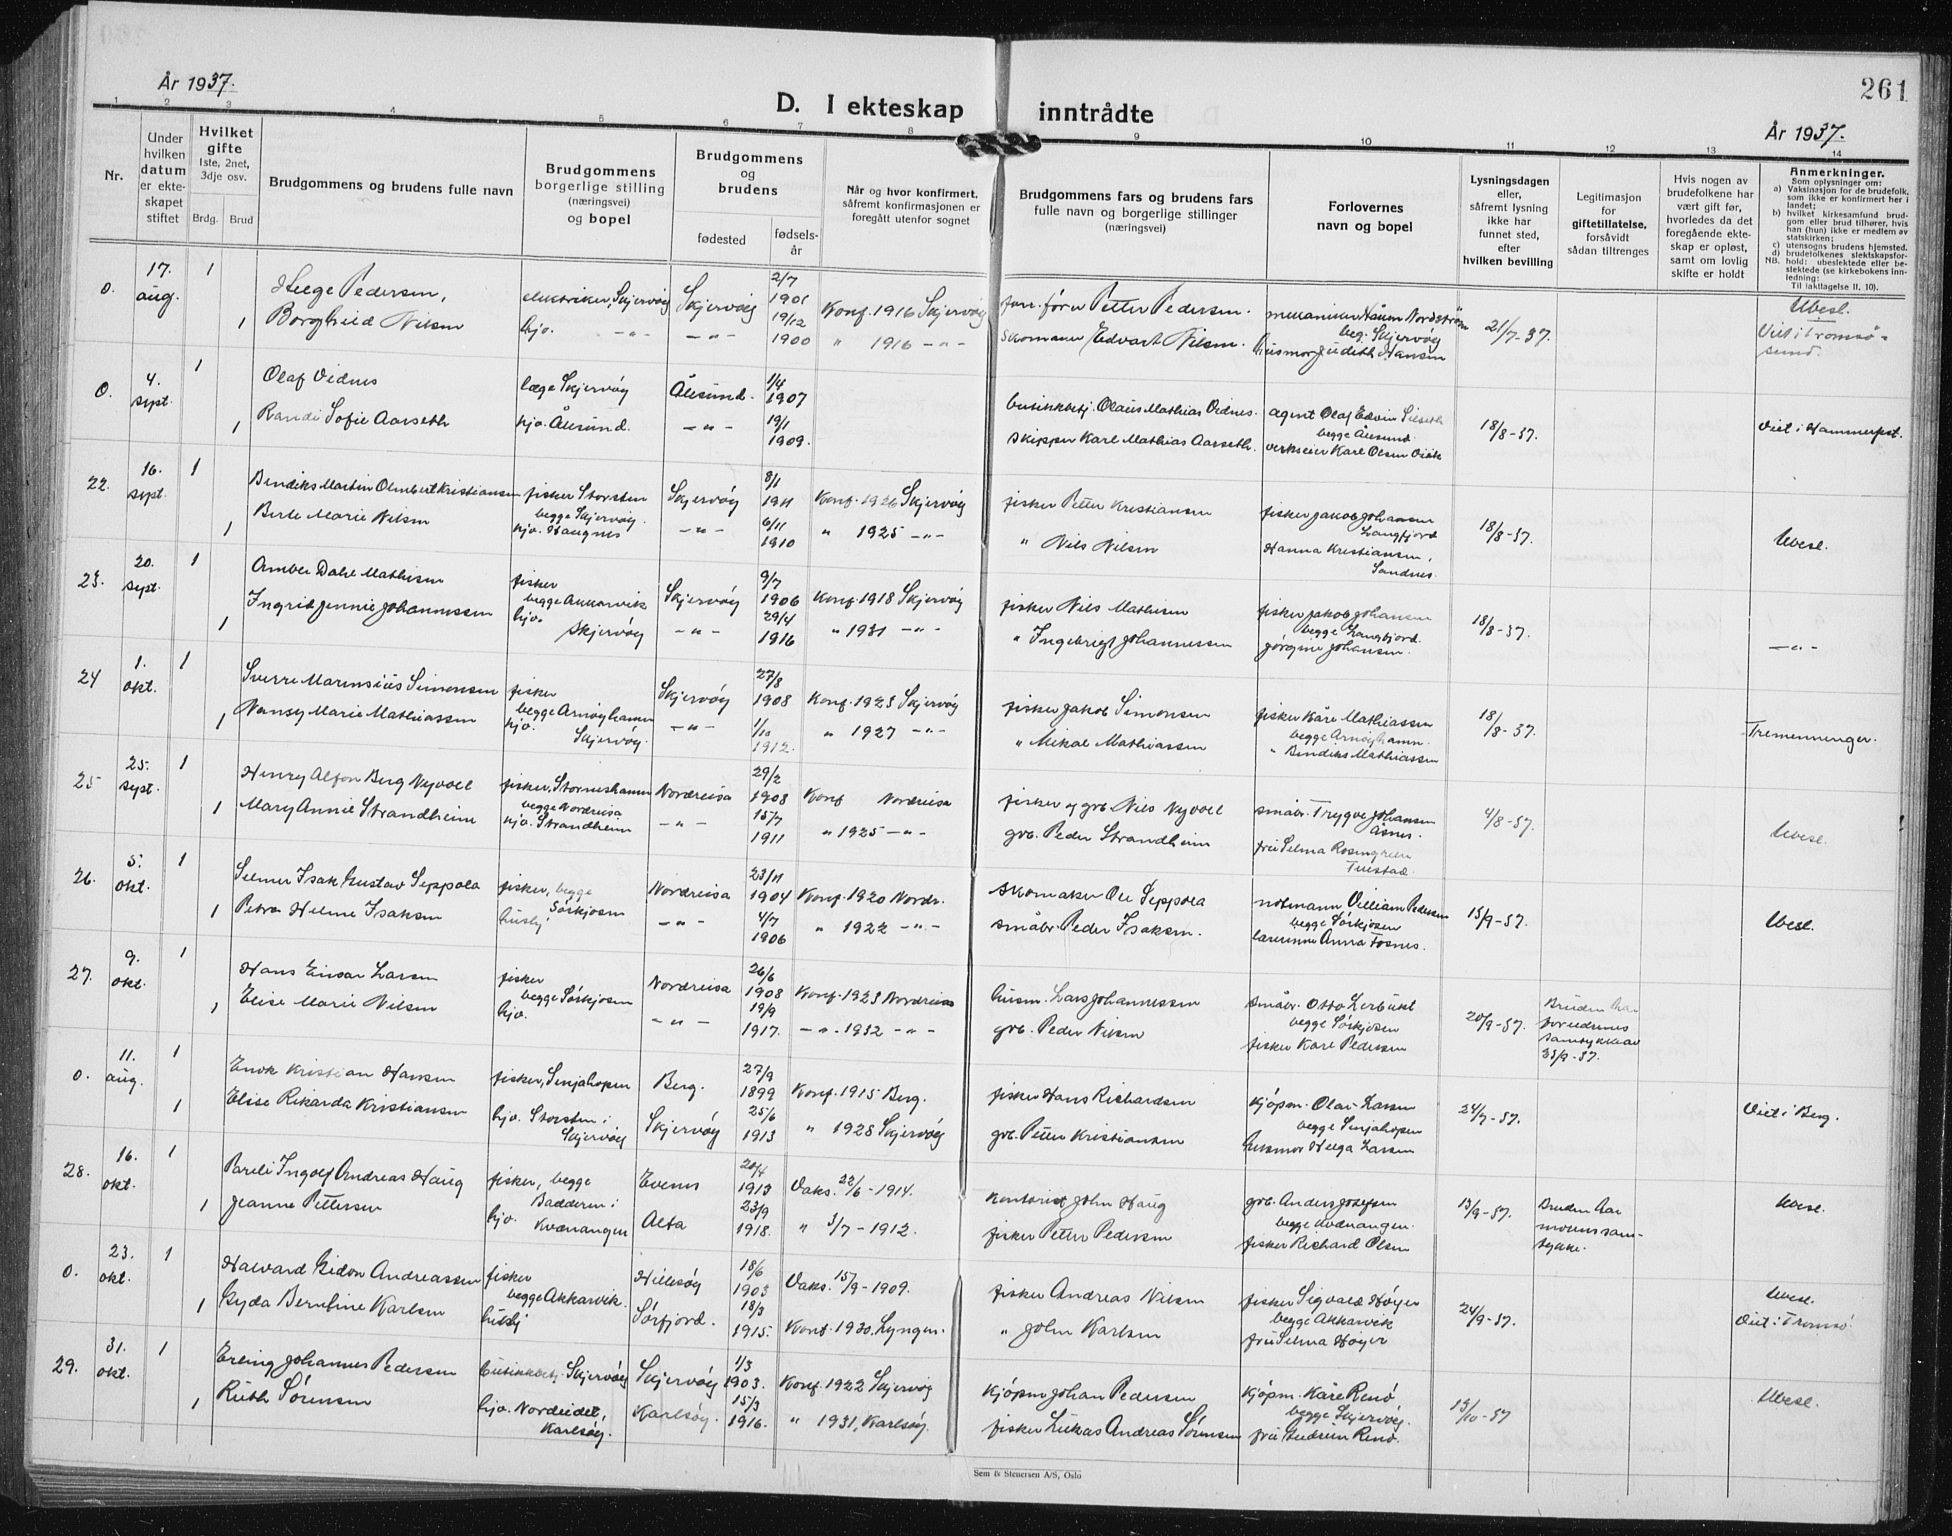 År 1937.
261
D. I ekteskap inntrådte
År 1937.
1 2 3 4 5 6 7 8 9 10 11 12 13 14
Nr.
Under hvilken datum er ekteskapet stiftet
Hvilket gifte
1ste, 2net, 3dje osv.
Brdg. Brud
Brudgommens og brudens fulle navn
Brudgommens borgerlige stilling (næringsvei) og bopel
Brudgommens og brudens
fødested
fødselsår
Når og hvor konfirmert, såfremt konfirmasjonen er foregått utenfor sognet
Brudgommens fars og brudens fars fulle navn og borgerlige stillinger (næringsvei)
Forlovernes navn og bopel
Lysningsdagen eller, såfremt lysning ikke har funnet sted, efter hvilken bevilling
Legitimasjon for giftetillatelse, forsåvidt sådan tiltrenges
Hvis nogen av brudefolkene har vært gift før, hvorledes da det foregående ekteskap er opløst, samt om lovlig skifte er holdt
Anmerkninger.
Som oplysninger om:
a) Vaksinasjon for de brudefolk, som ikke er konfirmert her i landet;
b) hvilket kirkesamfund brudgom eller brud tilhører, hvis han (hun) ikke er medlem av statskirken;
c) utensogns brudens hjemsted.
d) brudefolkenes slektskapsforhold: ubeslektede eller beslektede (se kirkebokens innledning:
NB. Til iakttagelse II. 10).
0. 17. aug. 1 Helge Pedersen, elektriker, Skjervøy Skjervøy 2/7 1901 Konf. 1916 Skjervøy Petter Pedersen. mekaniker Håkon Nordstrøm 21/7-37. Ubesl.
1 Borghild Nilsen hjv. -"- -"- 19/12 1900 " 1916 -"- skomaker Edvart Nilsen. beg. Skjervøy husmor Judith Hansen Viet i Tromsøsund.
0. 4. sept. 1 Olaf Vidnes læge Skjervøy Ålesund. 1/4 1907 butikkbetj. Olaus Mathias Vidnes. agent Olaf Edvin 18/8-37. Viet i Hammerfest.
1 Randi Sofie Aarseth hjv. Ålesund. -"- 19/1 1909. skipper Karl Mathias Aarseth. begge Ålesund. verkseier Karl Olsen
22. 16. sept. 1 Bendiks Martin Olmbert Kristiansen fisker Storsten Skjervøy 8/1 1911 Konf. 1926 Skjervøy fisker Petter Kristiansen fisker Jakob Johansen Langfjord 18/8-37. Ubesl.
1 Berle Marie Nilsen begge Skjervøy. hjv. Haugnes -"- 6/11 1910 " 1925 -"- " Nils Nilsen Hanna Kristiansen, Sandnes.
23. 20. sept. 1 Amber Dahl Mathisen fisker begge Akkarvik Skjervøy 9/7 1906 Konf. 1918 Skjervøy fisker Nils Mathisen fisker Jakob Johansen begge Langfjord. 18/8-37. -"-
1 Ingrid Jennie Johannessen hjv. Skjervøy -"- 29/4 1916 " 1931 -"- " Ingebrigt Johannessen Jørgine Johansen.
24 1. okt. 1 Sverre Marensius Simonsen fisker begge Arnøyhamn Skjervøy 27/8 1908 Konf. 1923 Skjervøy fisker Jakob Simonsen fisker Kåre Mathiassen begge Arnøyhamn. 18/8-37. Tremenninger.
1 Nansy Marie Mathiassen hjv. Skjervøy. -"- 1/10 1912. " 1927 -"- " Mikal Mathiassen " Bendiks Mathiassen
25 25. sept. 1 Henry Alfon Berg Nyvoll fisker, Storneshamn Nordreisa 29/2 1908 Konf Nordreisa fisker og gbr. Nils Nyvoll småbr. Trygve Johansen Åsnes. 4/8-37. Ubesl.
1 Mary Annie Strandheim begge Nordreisa hjv. Strandheim -"- 15/7 1911 " 1925 -"- gbr. Peder Strandheim frii Selma Rosengren
26. 5. okt. 1 Selmer Isak Gustav Seppola fisker, begge Sørkjosen Nordreisa 23/11 1904 Konf. 1920 Nordr. skomaker Ole Seppola notmann Villiam Pedersen begge Sørkjosen 15/9-37. Ubesl.
1 Petra Helene Isaksen husbj -"- 4/7 1906 " 1922 -"- småbr. Peder Isaksen. lærerinne Anna Fosnes.
27. 9. okt. 1 Hans Einar Larsen fisker begge Sørkjosen Nordreisa 26/6 1908 Konf. 1923 Nordreisa husm. Lars Johannessen småbr. Otto Lerbukt begge Sørkjosen 20/9-37. Bruden har foreldrenes samtykke av 25/9-37.
1 Elise Marie Nilsen hjv. -"- 19/9 1917. -"- 1932 -"- gbr. Peder Nilsen fisker Karl Pedersen
0. 11. aug. 1 Enok Kristian Hansen fisker, Senjahopen Berg. 27/9 1899 Konf. 1915 Berg. fisker Hans Richardsen kjøpm. Olav Larsen begge Senjahopen 24/7-37. Viet i Berg.
1 Elise Rikarda Kristiansen hjv. Storsten i Skjervøy Skjervøy 25/6 1913 " 1928 Skjervøy gbr. Petter Kristiansen husmor Helga Larsen
28. 16. okt. 1 Pareli Ingolf Andreas Haug fisker, begge Badderen i Evenes 20/4 1913 Vaks. 22/6-1914. kontorist John Haug gbr. Anders Josefsen begge Kvænangen. 13/9-37. Bruden har morens samtykke. Ubesl.
1 Jeanne Pettersen hjv. Kvænangen Alta 23/9 1918. " 3/7-1912. fisker Petter Pedersen fisker Richard Olsen
0. 23. okt. 1 Halvard Gidon Andreassen fisker begge Akkarvik. Hillesøy 18/6 1903 Vaks. 15/9-1909. fisker Andreas Nilsen fisker Sigvald Høyer begge Akkarvik 24/9-37. Ubesl.
1 Gyda Berntine Karlsen husbj Sørfjord. 18/3 1915. Konf. 1930, Lyngen. " John Karlsen frii Selma Høyer Viet i Tromsø.
29. 31. okt. 1 Erling Johannes Pedersen butikkbetj. Skjervøy Skjervøy 1/3 1903. Konf. 1922 Skjervøy kjøpm Johan Pedersen kjøpm. Kåre Renø begge Skjervøy. 15/10-37 Ubesl.
1 Ruth Sørensen hjv. Nordeidet, Karlsøy. Karlsøy. 15/3 1916. " 1931, Karlsøy. fisker Lukas Andreas Sørensen frii Gudrun Renø.
Sem & Stenersen A/S, Oslo